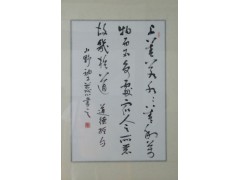 上善若水水善利萬
物而不爭處眾人之所惡
故幾於道 道德經句
山野